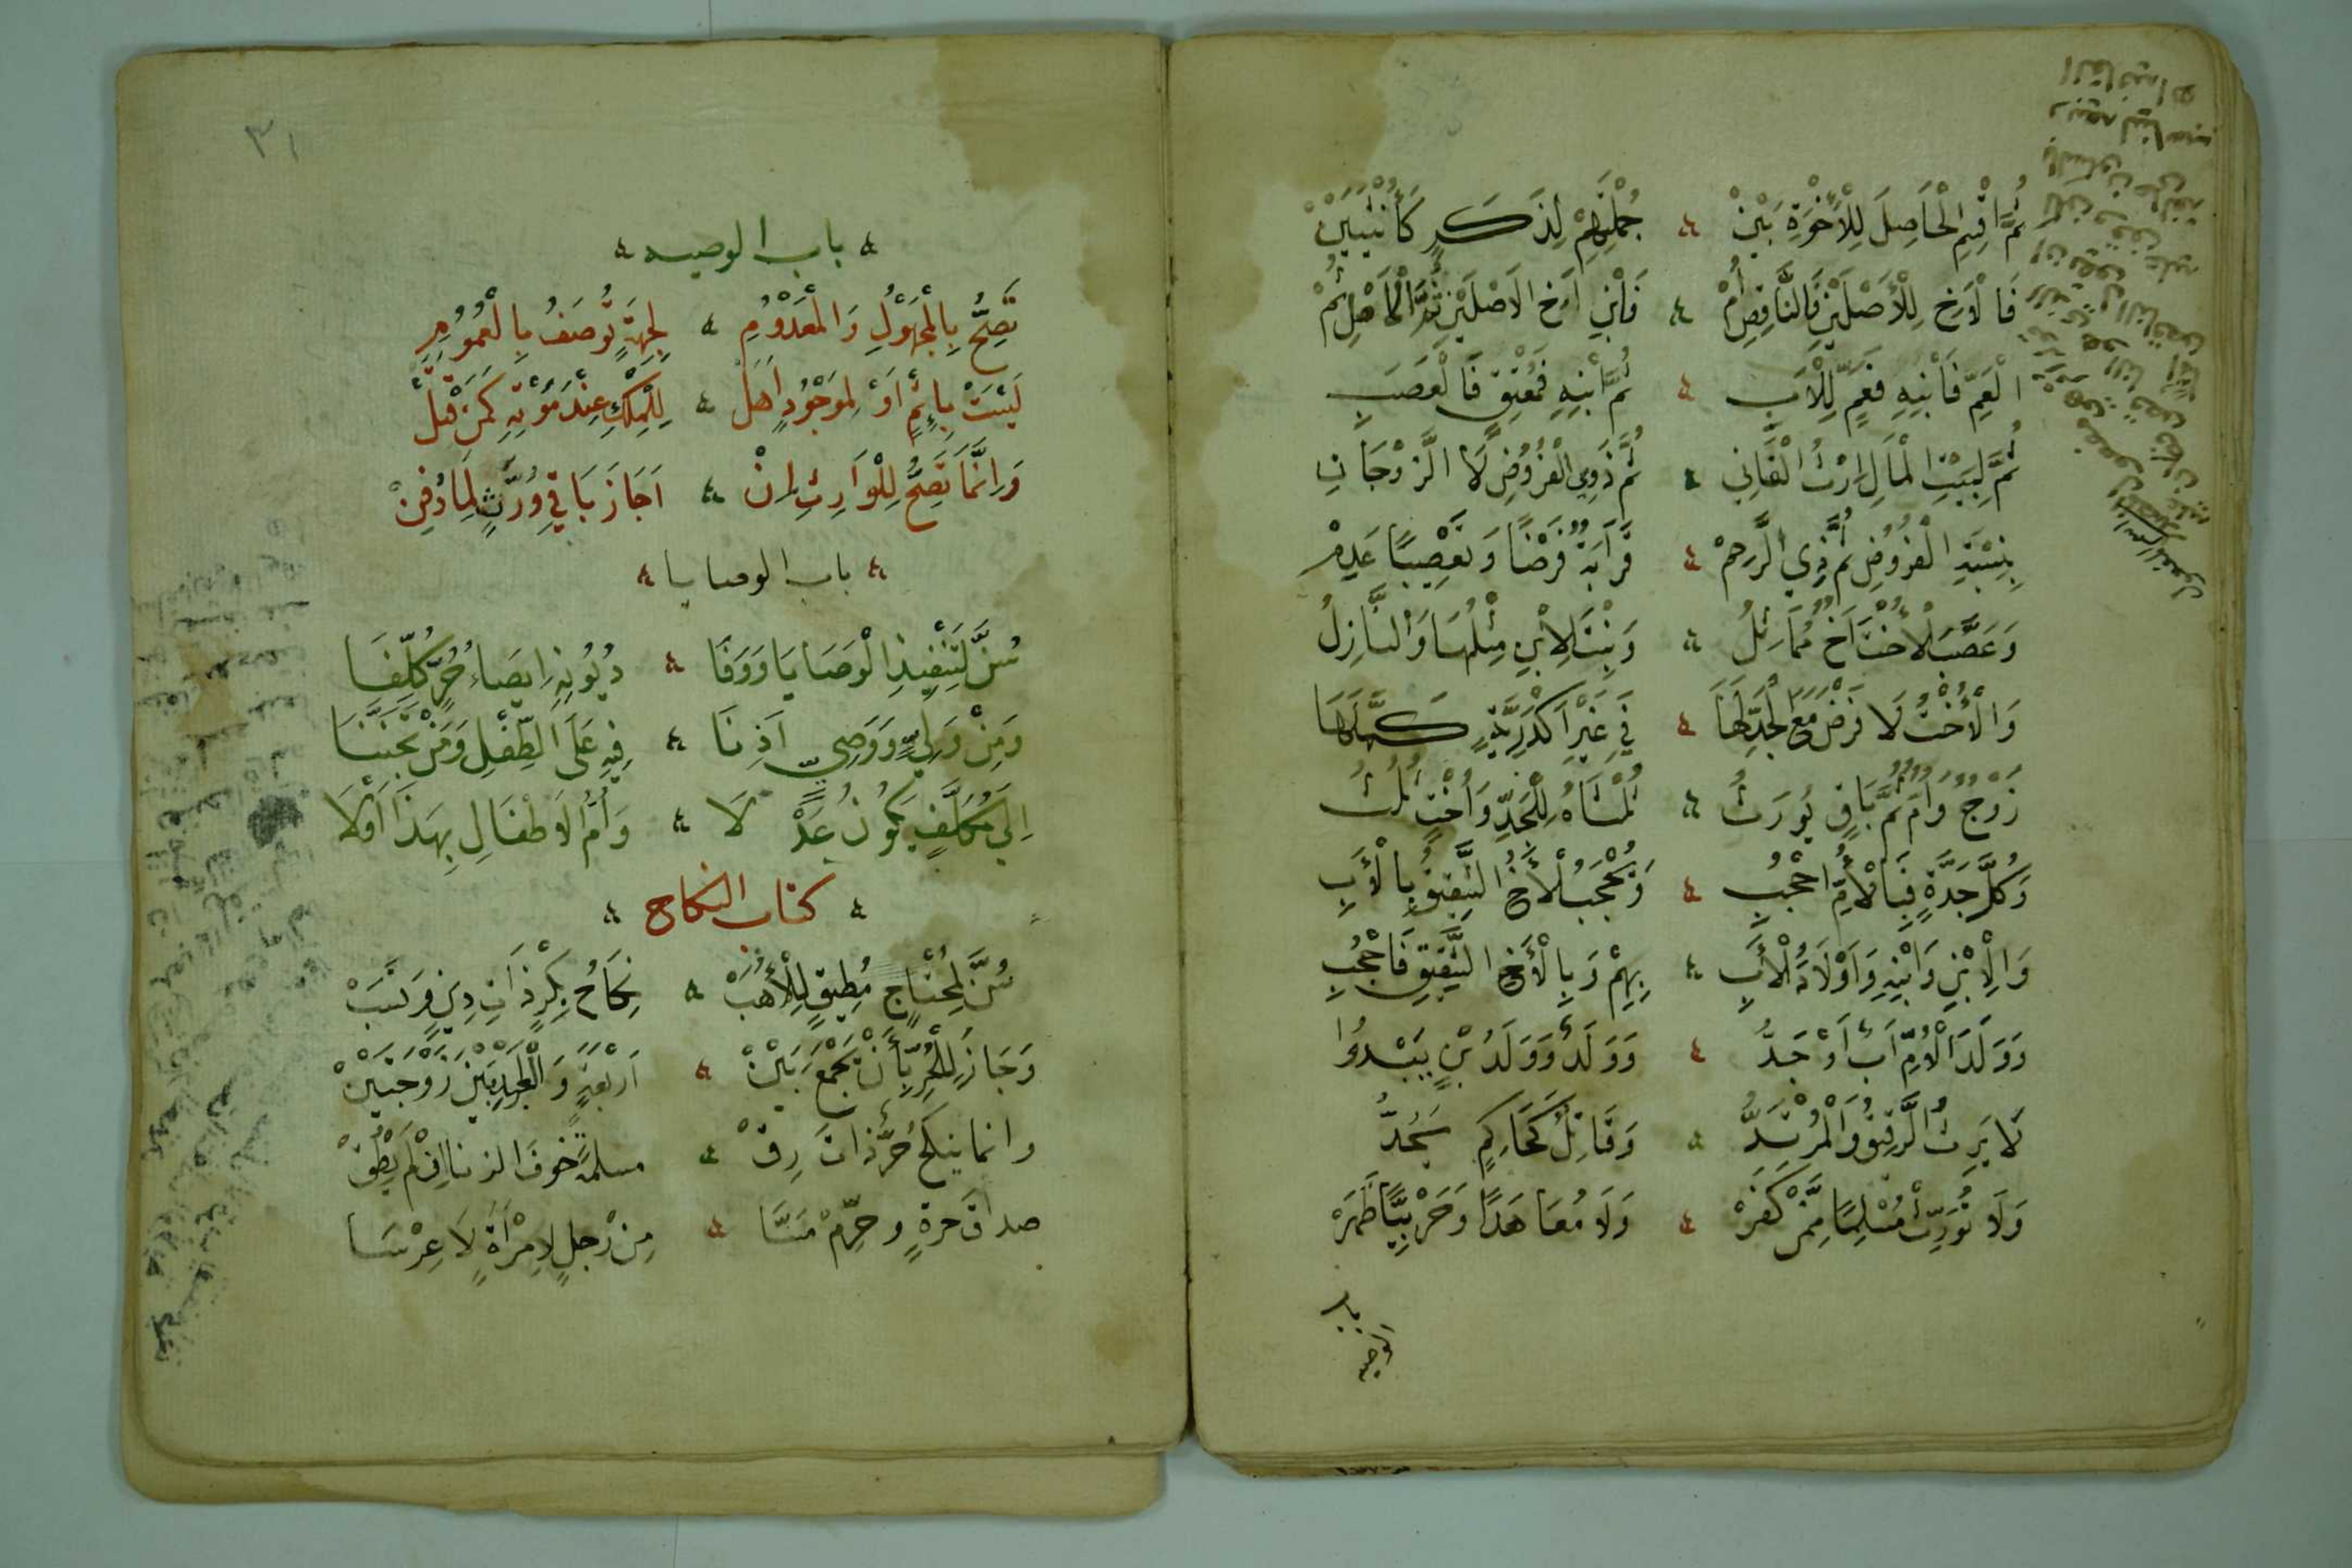 ثُمَّ اقْسِمِ الْحَاصِلَ لِلْأُخْوَةِ بَيْنْ جُمْلَتِهِمْ لِذَكَرٍ كَأُنْثَيَيْنْ
فَالْأَخِ لِلْأَصْلَيْنِ فَالنَّاقِصِ أُمْ فَابْنِ أَخِ الْأَصْلَيْنِ ثُمَّ الْأَصْلِ ثُمْ
الْعَمِّ فَابْنِهِ فَعَمٍّ لِلْأَبِ ثُمَّ ابْنِهِ فَمُعْتِقٍ فَالْعَصَبِ
ثُمَّ لِبَيْتِ الْمَالِ إِرْثُ الْفَانِي ثُمَّ ذَوِي الْفُرُوضِ لَا الزَّوْجَانِ
بِنِسْبَةِ الْفُرُوضِ ثُمَّ ذِي الرَّحِمْ قَرَابَةٌ فَرْضًا وَتَعْصِيبًا عَدِمْ
وَعَصَّبَ الْأُخْتَ أَخٌ مُمَاثِلُ وَبِنْتَ لِابْنٍ مِثْلُهَا وَالنَّازِلُ
وَالْأُخْتُ لَا فَرْضَ مَعَ الْجَدِّ لَهَا فِي غَيْرِ أَكْدَرِيَّةٍ كَمَّلَهَا
زَوْجٌ وَأُمٌّ ثُمَّ بَاقٍ يُورَثُ ثُلْثَاهُ لِلْجَدِّ وَأُخْتٍ ثُلُثُ
وَكُلَّ جَدَّةٍ فَبِالْأُمِّ احْجُبِ وَيُحْجَبُ الْأَخُ الشَّقِيقُ بِالْأَبِ
وَالِابْنِ وَابْنِهِ وَأَوْلَادُ الْأَبِ بِهِمْ وَبِالْأَخِ الشَّقِيقِ فَاحْجُبِ
وَوَلَدَ الْأُمِّ أَبٌ أَوْ جَدُّ وَوَلَدٌ وَوَلَدُ ابْنٍ يَبْدُوا
لَا يَرِثُ الرَّقِيقُ وَالْمُرْتَدُّ وَقَاتِلٌ كَحَاكِمٍ يَحُدُّ
وَلَا تُوَرِّثْ مُسْلِمًا مِمَّنْ كَفَرْ وَلَا مُعَاهَدًا وَحَرْبِيًّا ظَهَرْ
باب الوصيه
٣١
باب الوصيه
تَصِحُّ بِالْمَجْهُولِ وَالْمَعْدُومِ لِجِهَةٍ تُوصَفُ بِالْعُمُومِ
لَيْسَتْ بِإِثْمٍ أَوْ لِمَوْجُودٍ أَهَلْ لِلْمِلْكِ عِنْدَ مَوْتِهِ كَمَنْ قَتَلْ
وَإِنَّمَا تَصِحُّ لِلْوَارِثِ إِنْ أَجَازَ بَاقِي وُرَّثٍ لِمَا دُفِنْ
باب الوصايا
سُنَّ لِتَنْفِيذِ الْوَصَايَا وَوَفَا دُيُونِهِ إِيصَاءُ حُرٍّ كُلِّفَا
وَمِنْ وَلِيٍّ وَوَصِيٍّ أَذِنَا فِيهِ عَلَى الطِّفْلِ وَمَنْ تَجَنَّنَا
إِلَى مُكَلَّفٍ يَكُونُ عَدْلَا وَأُمُّ الْأَطْفَالِ بِهَذَا أَوْلَا
كتاب النكاح
سُنَّ لِمُحْتَاجٍ مُطِيقٍ لِلْأُهَبْ نِكَاحُ بِكْرٍ ذَاتِ دِينٍ وَنَسَبْ
وَجَازَ لِلْحُرِّ بِأَنْ يَجْمَعَ بَيْنْ أَرْبَعَةٍ وَالْعَبْدِ بَيْنَ زَوْجَتَيْنْ
وانما ينكح حُرٌّ ذَاتَ رِقْ مسلمةً خوفَ الزنا إنْ لَمْ يُطِقْ
صداقَ حرةٍ وحرِّمْ مَسَّا مِنْ رَجلٍ لِامْرَأَةٍ لَا عِرْسَا